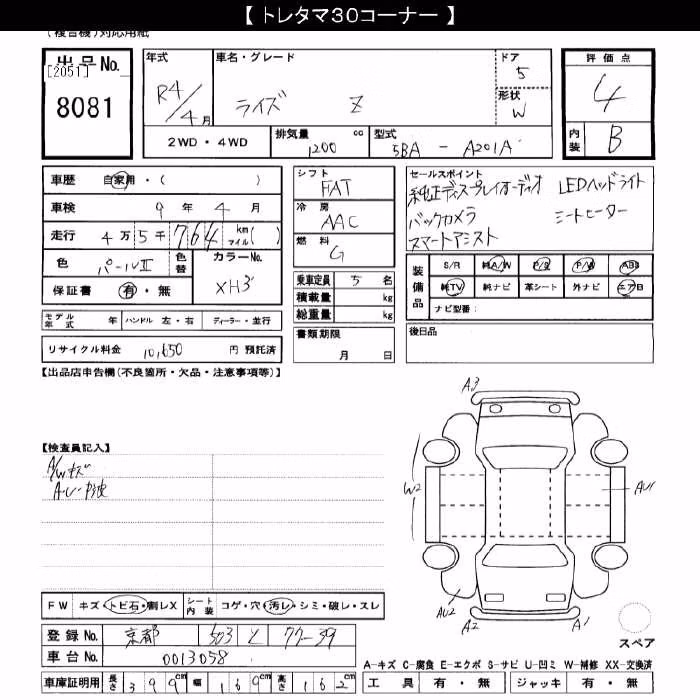 【 トレタマ30コーナー 】
(複合機)対応用紙
出品No.
[2051]
8081
年式
R4/4月
車名・グレード
ライズ Z
ドア
5
形状
W
評価点
4
内装
B
2WD・4WD
排気量 1200 cc
型式 5BA - A201A
車歴 自家用・( )
車検 9年 4月
走行 4万5千764 km マイル( )
色 パールII
色替
カラーNo.
XH3
保証書 有・無
モデル年式 年
ハンドル 左・右
ディーラー・並行
リサイクル料金 10,650 円 預託済
シフト
FAT
冷房
AAC
燃料
G
乗車定員 5 名
積載量 kg
総重量 kg
書類期限
月 日
セールスポイント
純正ディスプレイオーディオ LEDヘッドライト
バックカメラ シートヒーター
スマートアシスト
装備品
S/R 純A/W P/S P/W ABS
純TV 純ナビ 革シート 外ナビ エアB
ナビ型番:
後日品
【出品店申告欄(不良箇所・欠品・注意事項等)】
【検査員記入】
A/Wキズ
A・U
A3
W2
AU1
AU2
A2
A1
スペア
FW キズ・トビ石・割レX
シート内装 コゲ・穴・汚レ・シミ・破レ・スレ
登録No. 京都 503 と 77-39
車台No. 0013058
車庫証明用 長さ 399cm 幅 169cm 高さ 162cm
A-キズ C-腐食 E-エクボ S-サビ U-凹ミ W-補修 XX-交換済
工具 有・無 ジャッキ 有・無